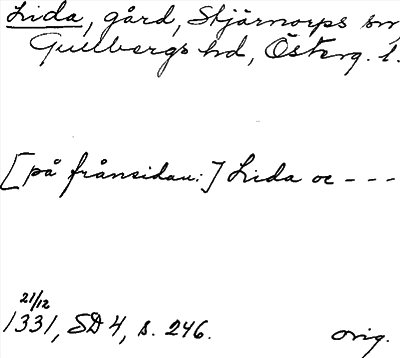 Lida, gård, Stjärnorps sn,
Gullbergs hd, Österg. l.
[på frånsidan:] Lida oc - - -
21/12
1331, SD 4, s. 246.
orig.